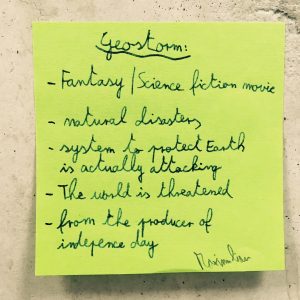 Geostorm:
- Fantasy / Science fiction movie
- natural disasters
- system to protect Earth
is actually attacking
- The world is threatened
- from the producer of
indepence day